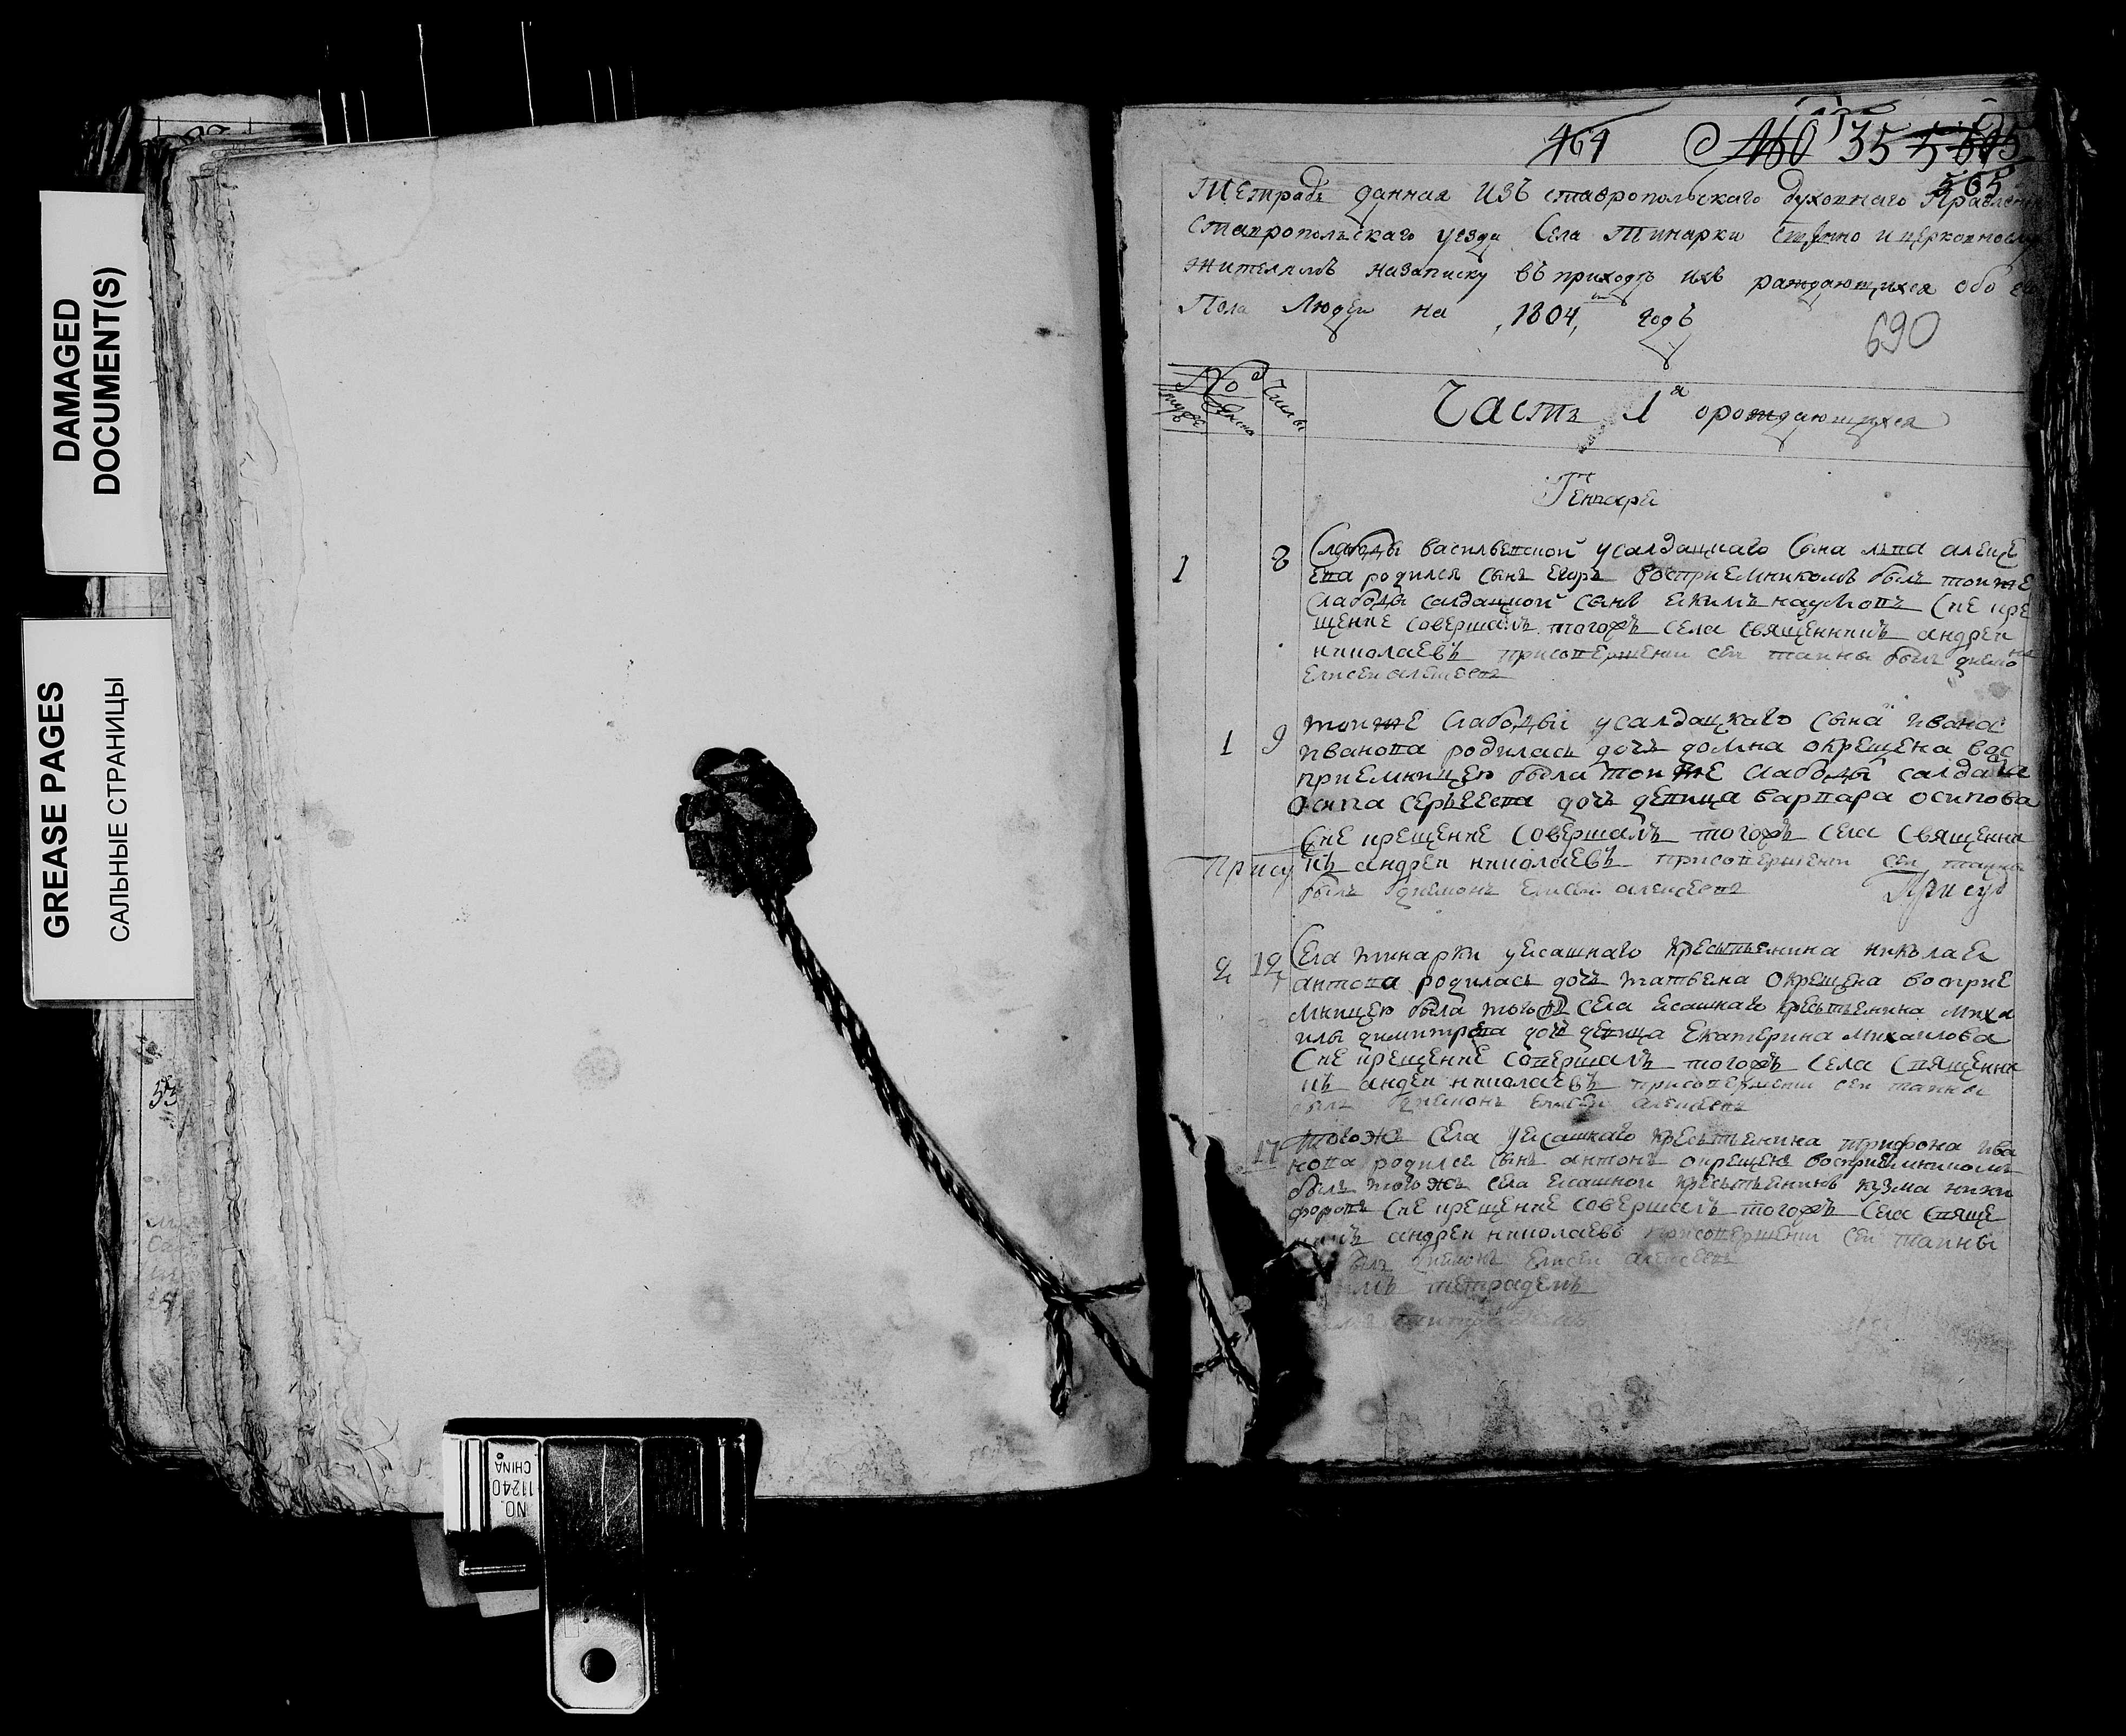 DAMAGED
DOCUMENT(S)
GREASE PAGES
САЛЬНЫЕ СТРАНИЦЫ
53
NO.
11240
CHINA
464 460 35
565
Тетрадь данная изъ ставропольскаго духовнаго Правлени
Ставропольскаго уезда Села Тинарки и церковнослу
жителямъ назаписку въ приходъ ихъ раждающихся обоего
Пола Людеи на 1804 годъ
690
№ Числы
Часть 1я ораждающихся
Генваря
1 8 Слабоды васильевской усалдацкаго Сына льва алекѣе
ева родился сынъ Егоръ воспри Емникомъ былъ тоиже
слабоды салдацкой сынъ екимъ наумовъ Сие кре
щение совершалъ тогожъ села священникъ андреи
николаевъ присовершении сеи таины былъ дияконъ
Елисеи алексеевъ
1 9 тоиже слабоды усалдацкаго сына ивана
иванова родилась дочь домна окрещена вос
приемницею была тоиже слабоды салдата
осипа сергеева дочь девица варвара осипова
Сие крещение совершалъ тогожъ села священни
къ андреи николаевъ присовершении сеи таины
былъ дияконъ Елисеи алексеевъ
Прису
Прису
2 12 Села тинарки уясашнаго крестьянина николая
антова родилась дочь татьяна окрещена восприе
мницею была тогожъ села ясашнаго крестьянина миха
илы димитрева дочь девица Екатерина михаилова
Сие крещение совершалъ тогожъ села священни
къ андреи николаевъ присовершении сеи таины
былъ диякон Елисеи алексеевъ
17 тогожъ села уясашнаго крестьянина трифона ива
нова родился сынъ антонъ окрещенъ восприемникомъ
былъ тогожъ села ясашнои крестьянинъ кузма ники
форовъ Сие крещение совершалъ тогожъ села свяще
нникъ андреи николаевъ присовершении сеи таины
былъ диякон Елисеи алексеевъ
тетрадемъ